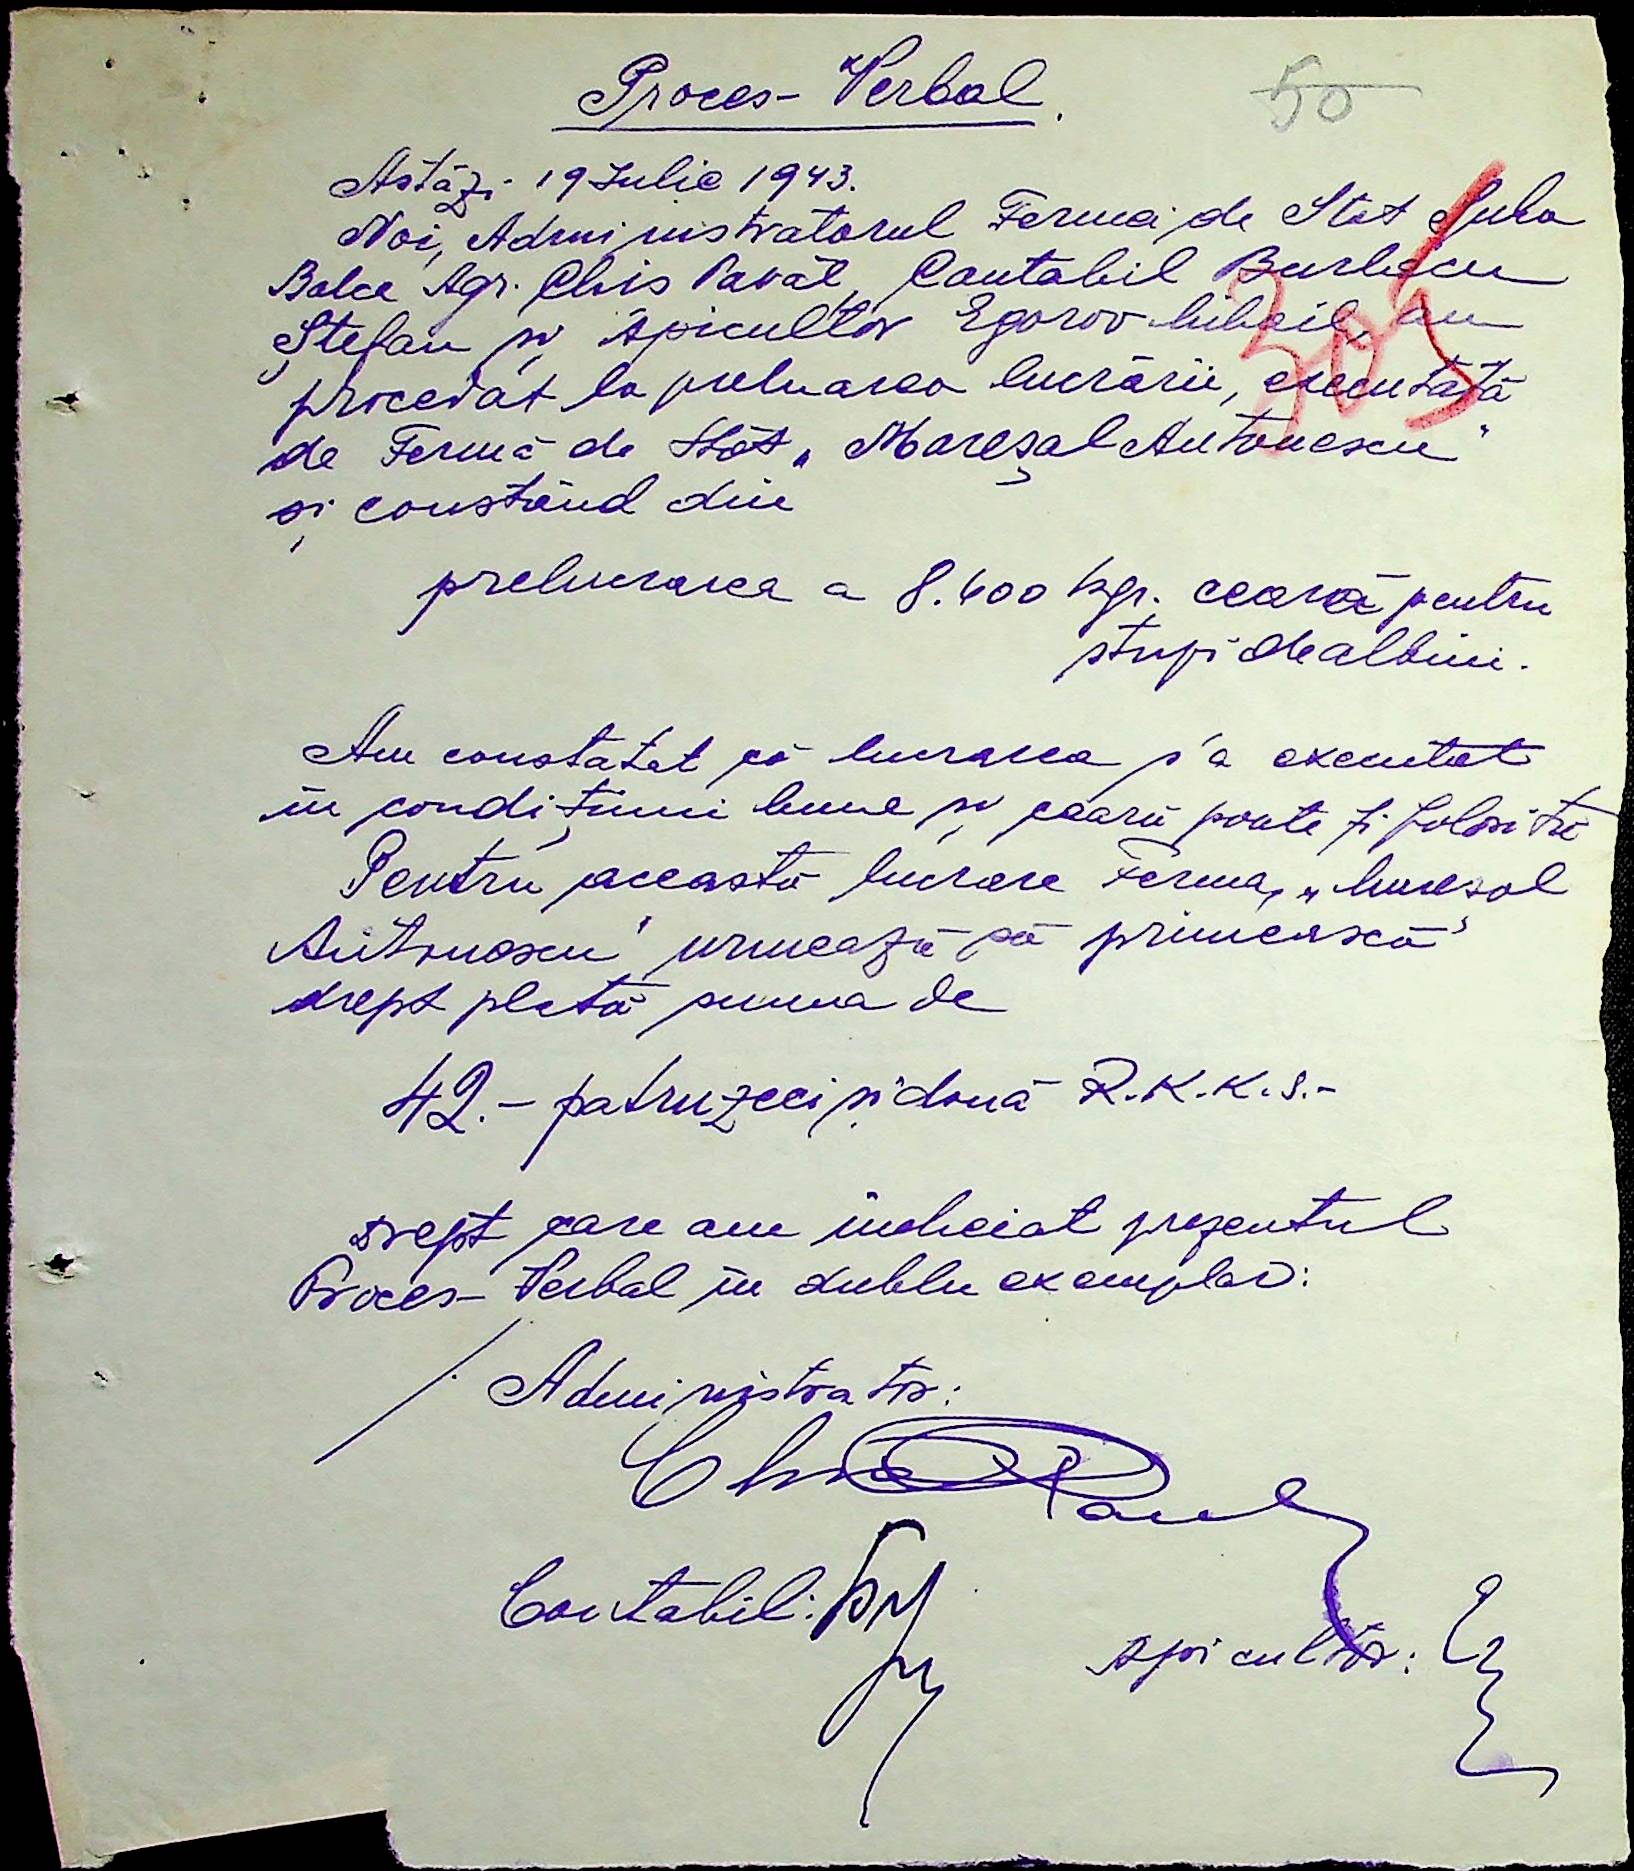 Proces-Verbal.
50
Astăzi 19 Iulie 1943.
Noi, Administratorul Fermei de Stat Suha
Balca Agr. Chis Pavăl, Contabil Burlacu
Ștefan și Apicultor Egorov Mihail, am
procedat la preluarea lucrării, executată
de Fermă de Stat „Mareșal Antonescu"
și constând din
305
prelucrarea a 8.400 kgr. ceară pentru
stupi de albini.
Am constatat că lucrarea s'a executat
în condițiuni bune și ceară poate fi folosită
Pentru această lucrare Ferma, „Maresal
Antonescu" urmează să primească
drept plată suma de
42.- patruzeci și două R.K.K.S.-
Drept care am încheiat prezentul
Proces-Verbal în dublu exemplar:
Administrator:
Chis Pavel
Contabil:
Apicultor: